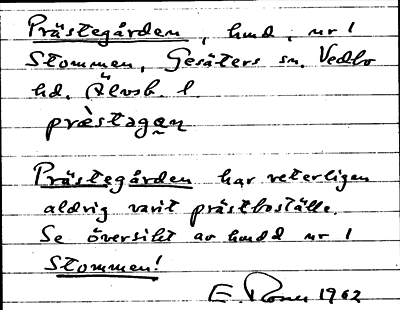 Prästegården, hmd. nr 1
Stommen, Gesäters sn. Vedbo
hd. Älvsb. l.
præ̀stagaṇ
Prästegården har veterligen
aldrig varit prästboställe.
Se översikt av hmdd nr 1
Stommen!
E. Rosen 1962